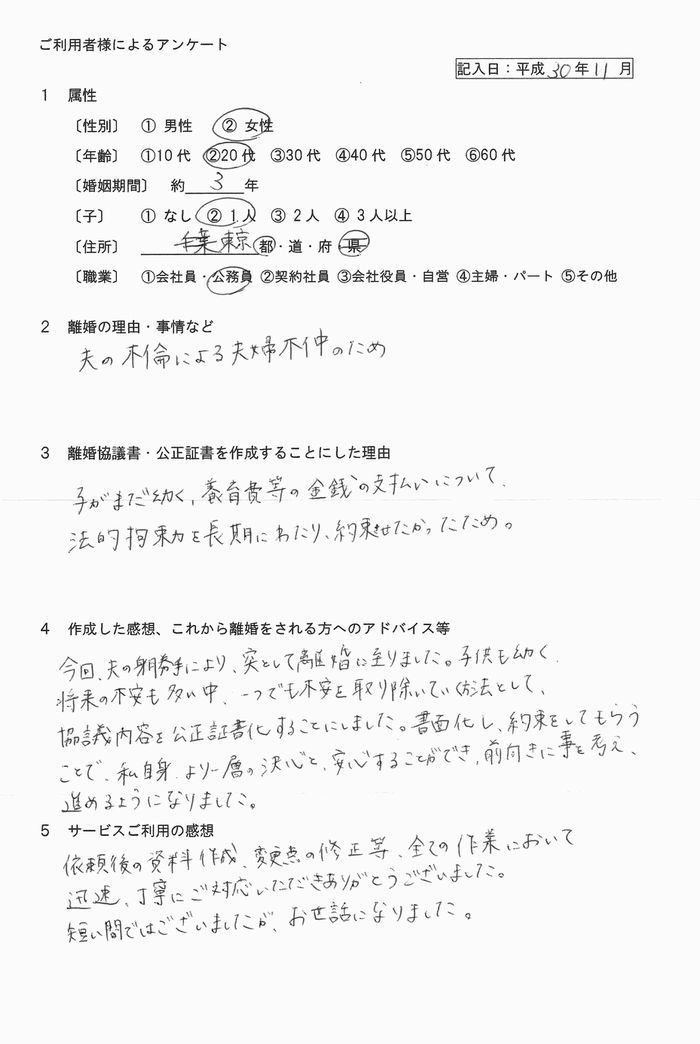 ご利用者様によるアンケート
記入日：平成30年11月
1 属性
〔性別〕 ① 男性 ② 女性
〔年齢〕 ①10代 ②20代 ③30代 ④40代 ⑤50代 ⑥60代
〔婚姻期間〕 約 3 年
〔子〕 ① なし ② 1人 ③ 2人 ④ 3人以上
〔住所〕 千葉 東京 都・道・府・県
〔職業〕 ①会社員・公務員 ②契約社員 ③会社役員・自営 ④主婦・パート ⑤その他
2 離婚の理由・事情など
夫の不倫による夫婦不仲のため
3 離婚協議書・公正証書を作成することにした理由
子がまだ幼く、養育費等の金銭の支払いについて、
法的拘束力を長期にわたり、約束せたかったため。
4 作成した感想、これから離婚をされる方へのアドバイス等
今回、夫の身勝手により、突として離婚に至りました。子供も幼く
将来の不安も多い中、一つでも不安を取り除いていく方法として、
協議内容を公正証書化することにしました。書面化し、約束をしてもらう
ことで、私自身、より一層の決心と、安心することができ、前向きに事を考え、
進めるようになりました。
5 サービスご利用の感想
依頼後の資料作成、変更点の修正等、全ての作業において
迅速、丁寧にご対応いただきありがとうございました。
短い間ではございましたが、お世話になりました。